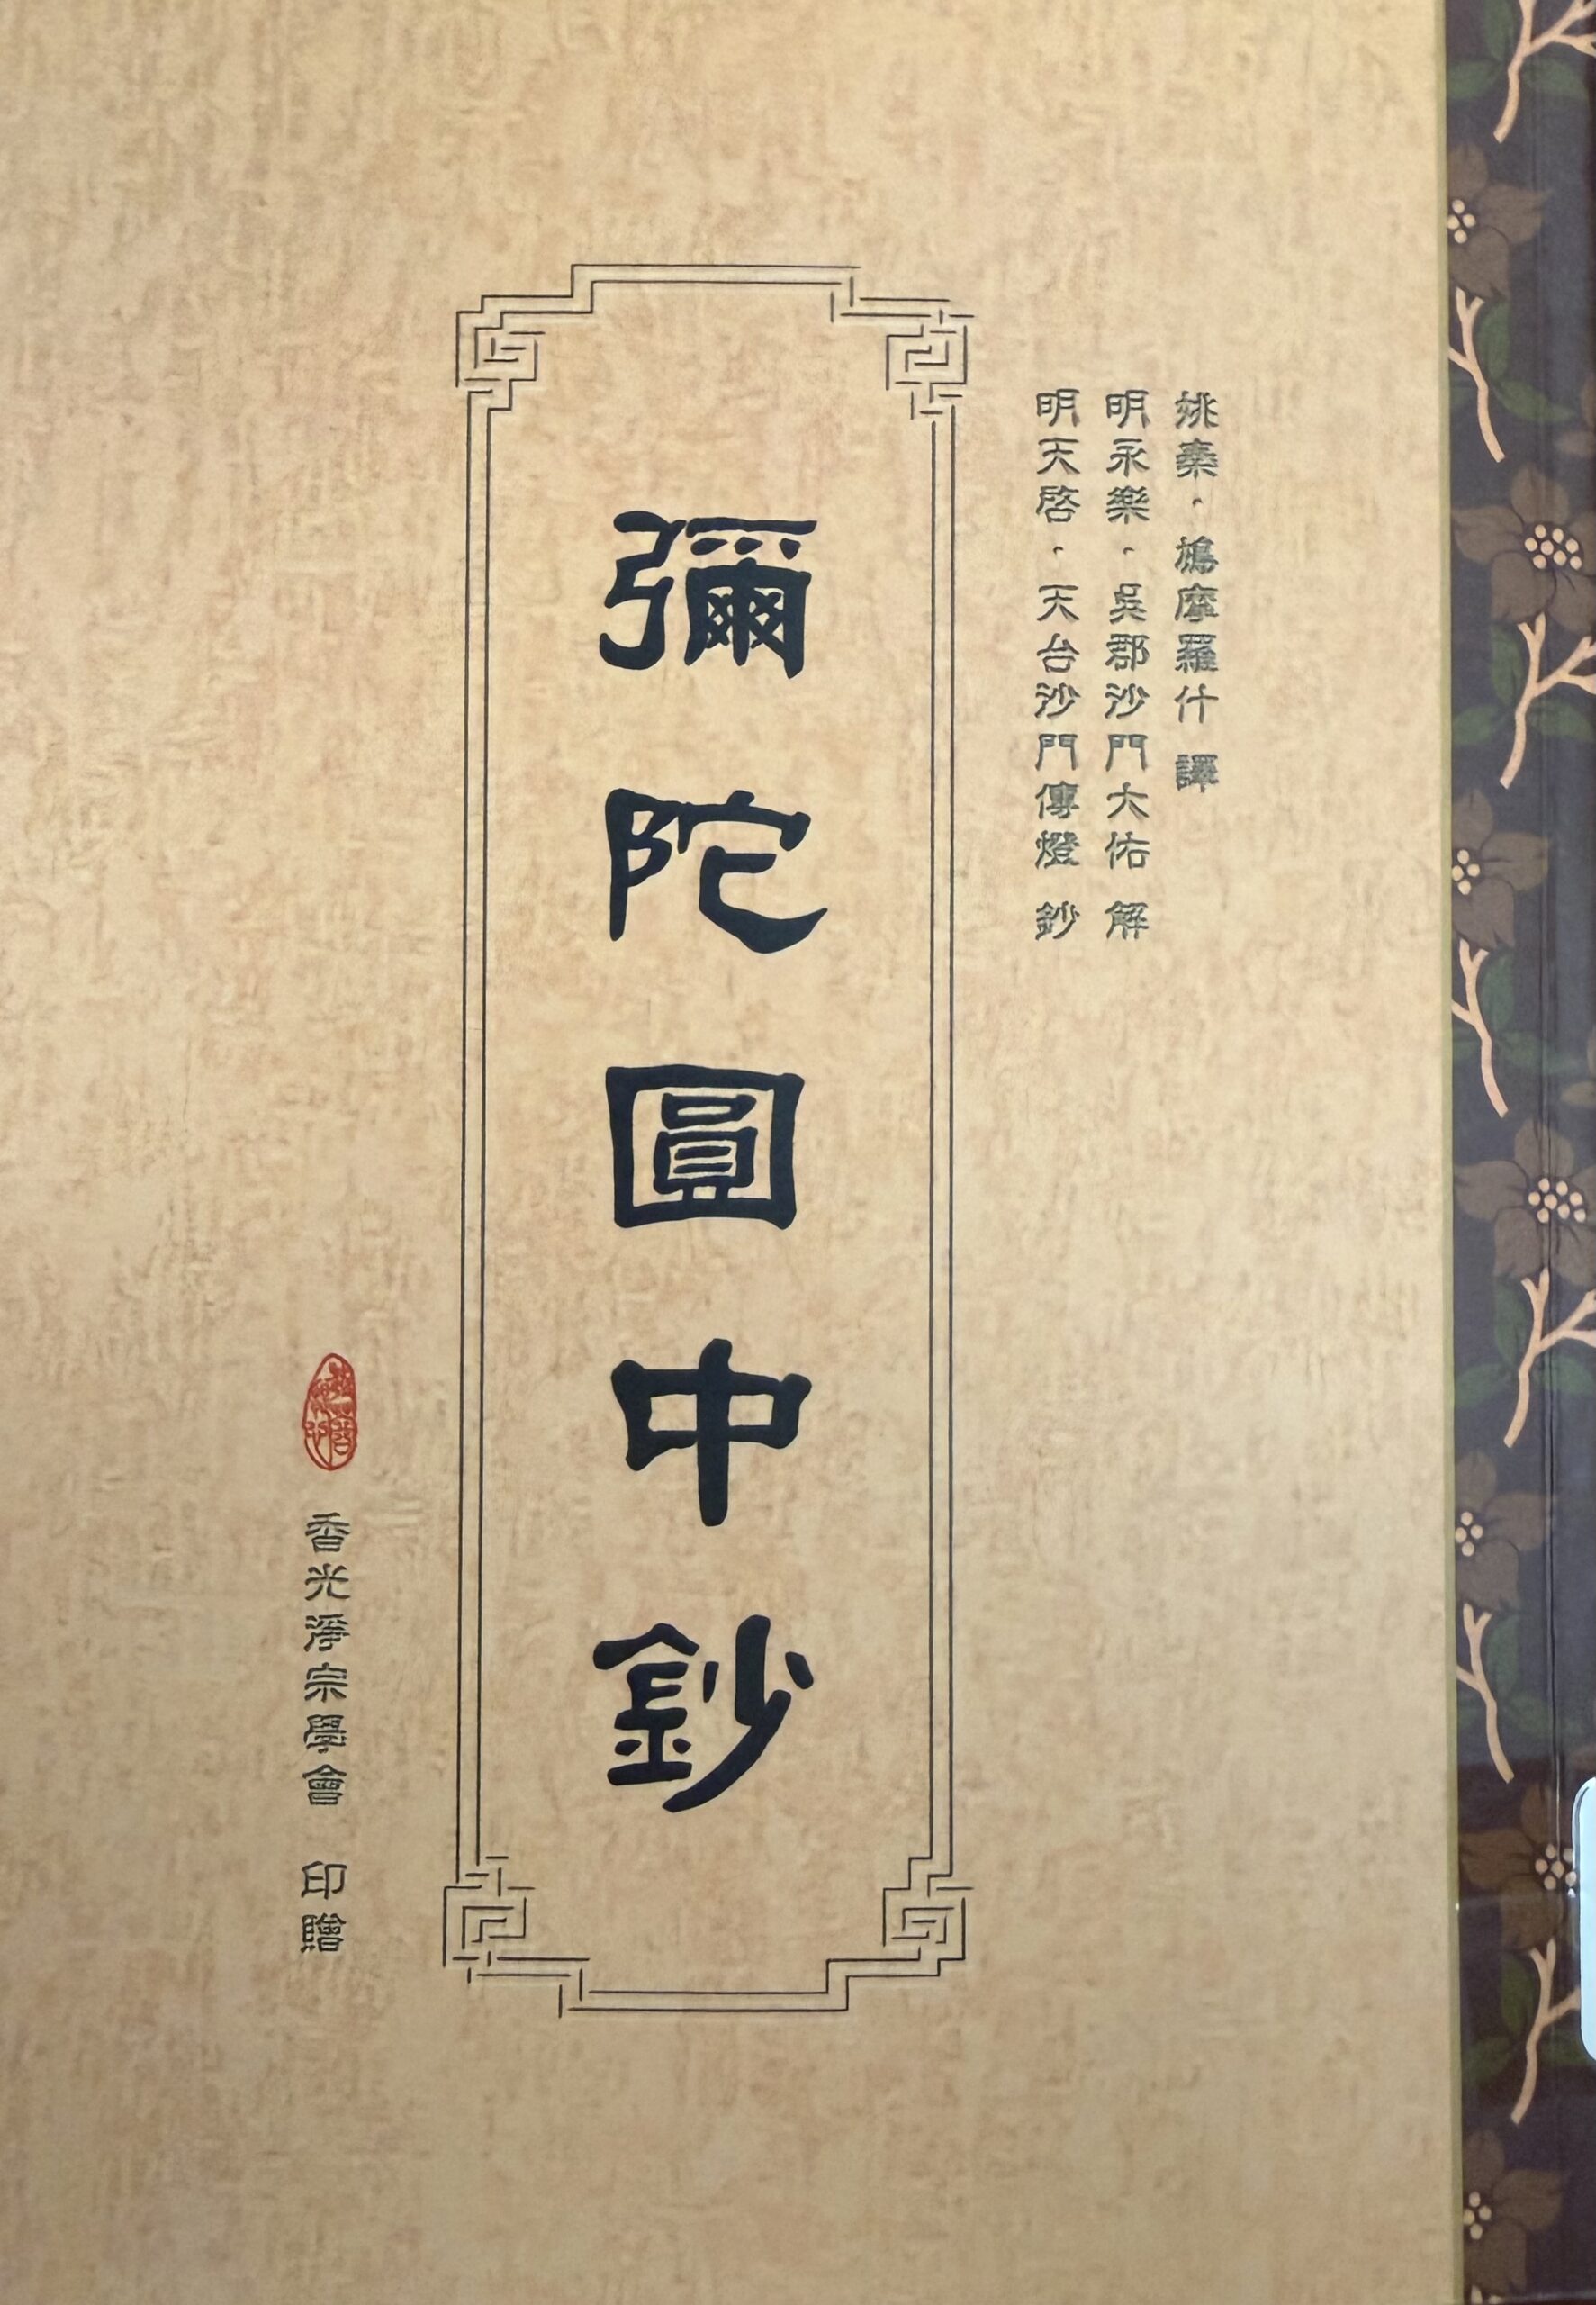 姚秦・鳩摩羅什 譯
明永樂・吳郡沙門大佑 解
明天啓・天台沙門傳燈 鈔
彌陀圓中鈔
香光淨宗學會 印贈